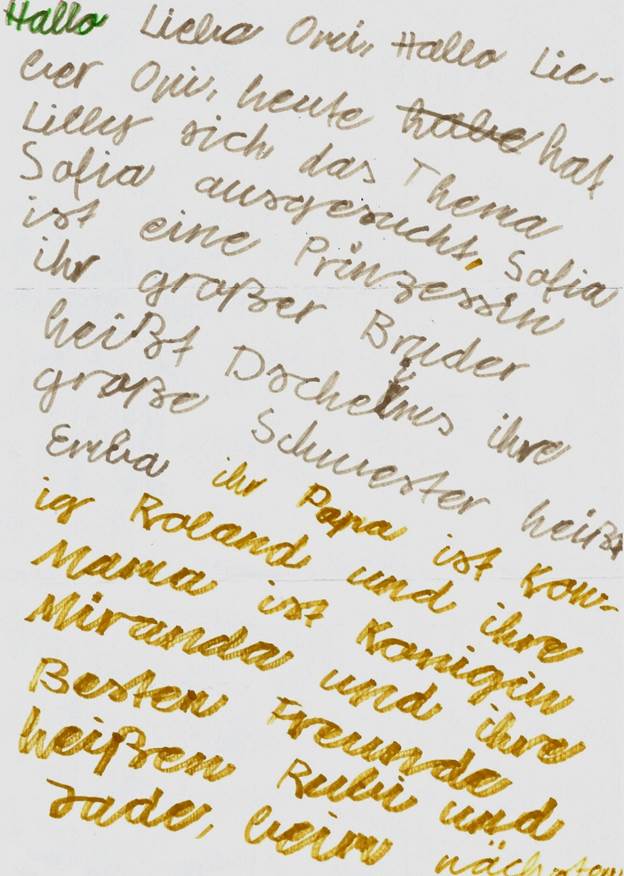 Hallo Liebe Omi, Hallo Lie-
ber Opi, heute habe hat
Lilly sich das Thema
Sofia ausgesucht, Sofia
ist eine Prinzessin
ihr großer Bruder
heißt Dscheims ihre
große Schwester heißt
Emba ihr Papa ist Kon-
ig Roland und ihre
Mama ist Konigin
Miranda und ihre
Besten Freunde
heißen Rubi und
Jade, beim nächsten